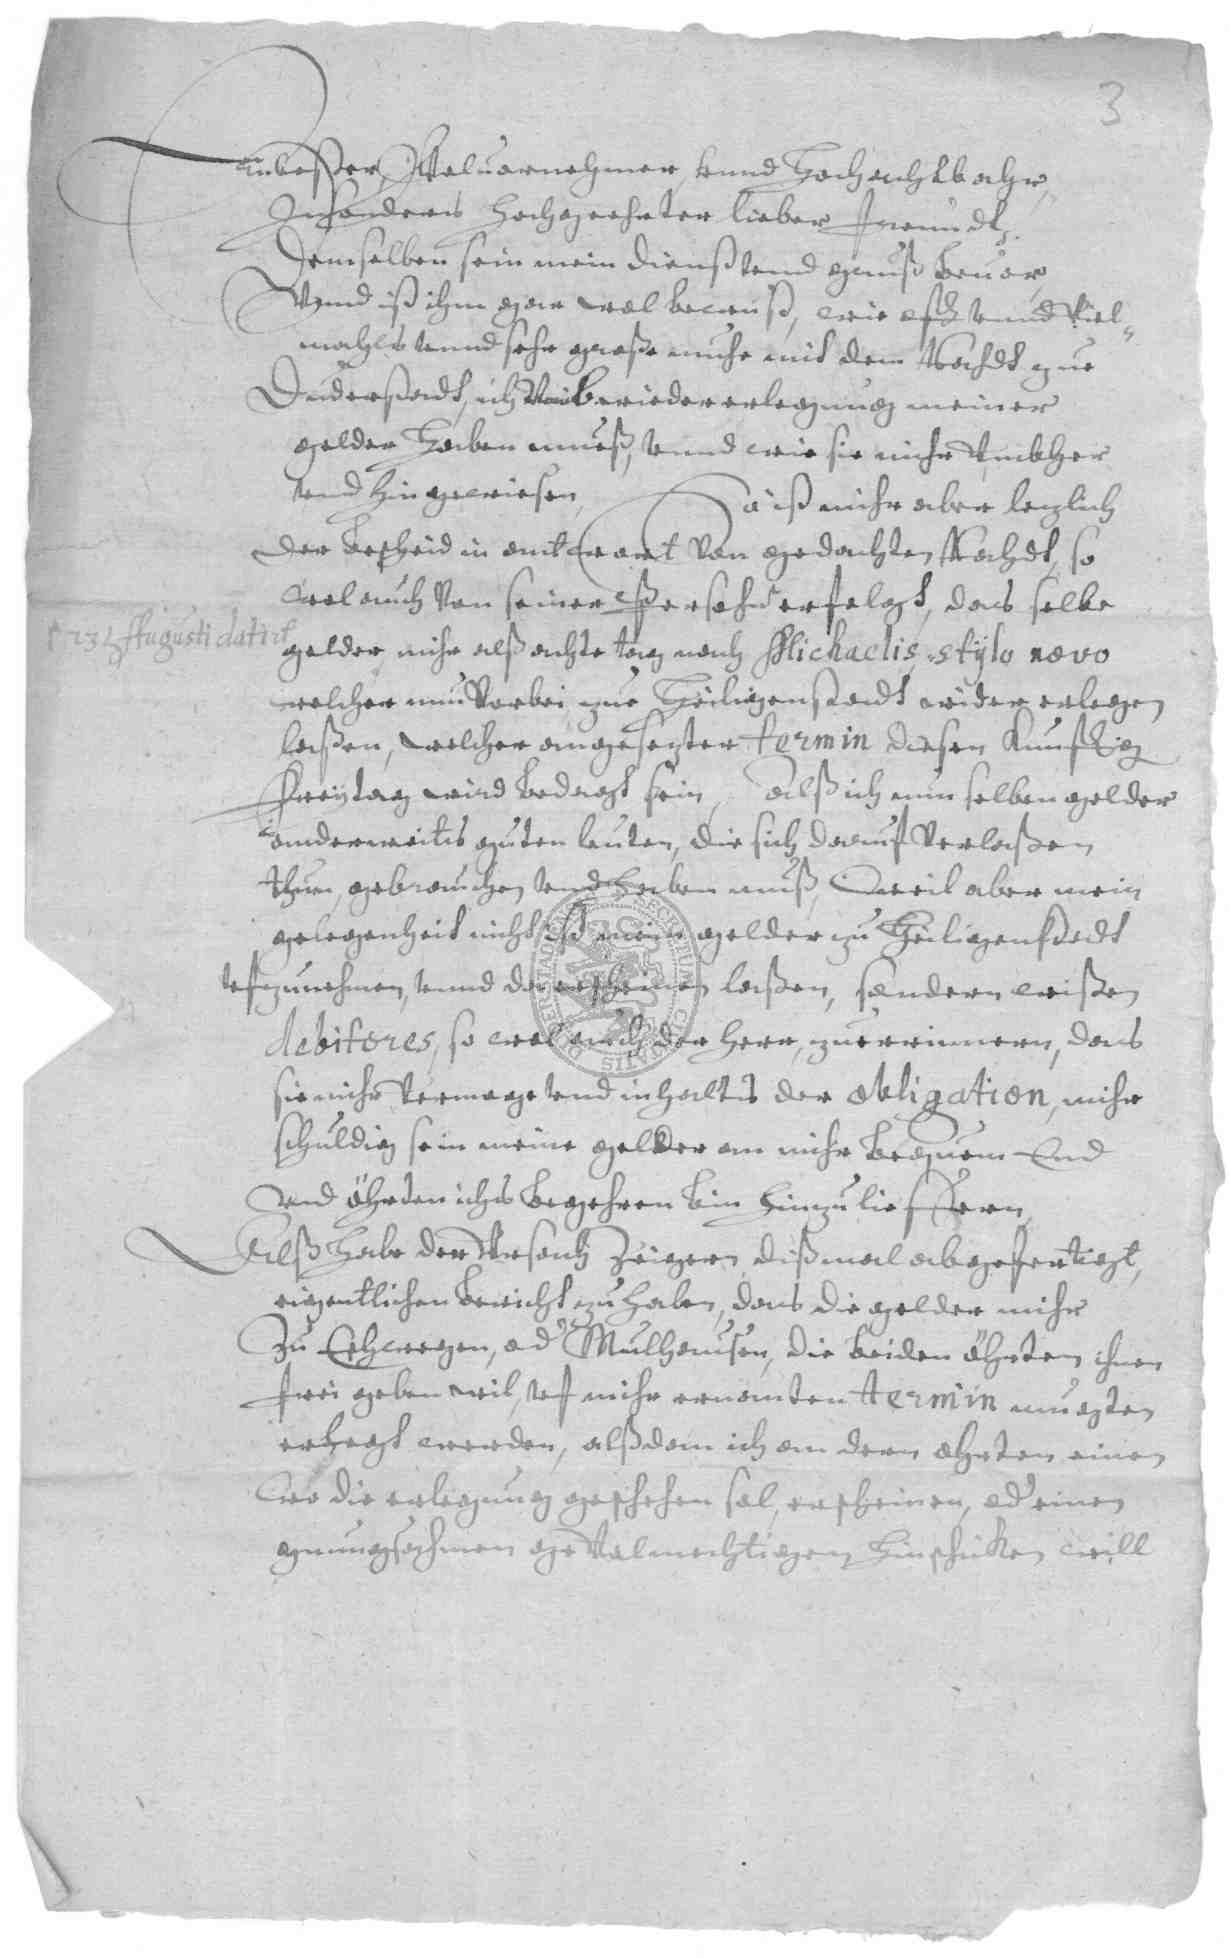 3
Ernvester, Wolvornehmer, unnd Hochachtbahr,
Insonders hochgeehrter lieber freundt,
Demselben sein mein dienst und grus bevor,
Unnd ist ihm gar wol bewust, wie oft unnd viel-
mahls unnd sehr große muhe mit dem Rahdt zue
Duderstadt, ich umb wiedererlegung meiner
gelder haben muess, unnd wie sie mihr umbher
und hin gewiesen, Da ist mihr aber lezlich
der bescheid in antwort von gedachten Rahdt, so
wol auch von seiner person erfolgt, das selbe
† 23t Augusti datirt
gelder, mihr alß achte tag nach Michaelis, stylo novo
welcher nun vorbei, zue Heiligenstadt wider erlegen
laßen, welcher angesezter termin diesen kunfftig
freytag wird bedagt sein, Alß ich nun selben gelder
anderweits guten leuten, die sich darauf verlaßen
thun, gebrauchen und haben muß, Weil aber mein
gelegenheit nicht ist meine gelder zu Heiligenstedt
ufzunehmen, unnd da erscheinen laßen, sondern wißen
debitores, so wol auch der herr, zu erinnern, das
sie mihr vermoge und inhalts der obligation, mihr
schuldig sein meine gelder an mihr bequem End
und öhrten ichs begehren bin hinzulieffern,
Alß habe der Ursach Zeigern dißmal abgefertigt,
eigentlichen bericht zu haben, das die gelder mihr
Zu Eschwegen, od Mulhausen, die beiden öhrten ihnen
frei geben wil, uf mihr ernanten termin mugten
erlegt werden, alßdan ich an dern ohrten einen
wo die erlegung geschehen sol, erscheinen, od einen
gnungsahmen gevolmechtigen hinschicken will
SECRETUM CIVITATIS